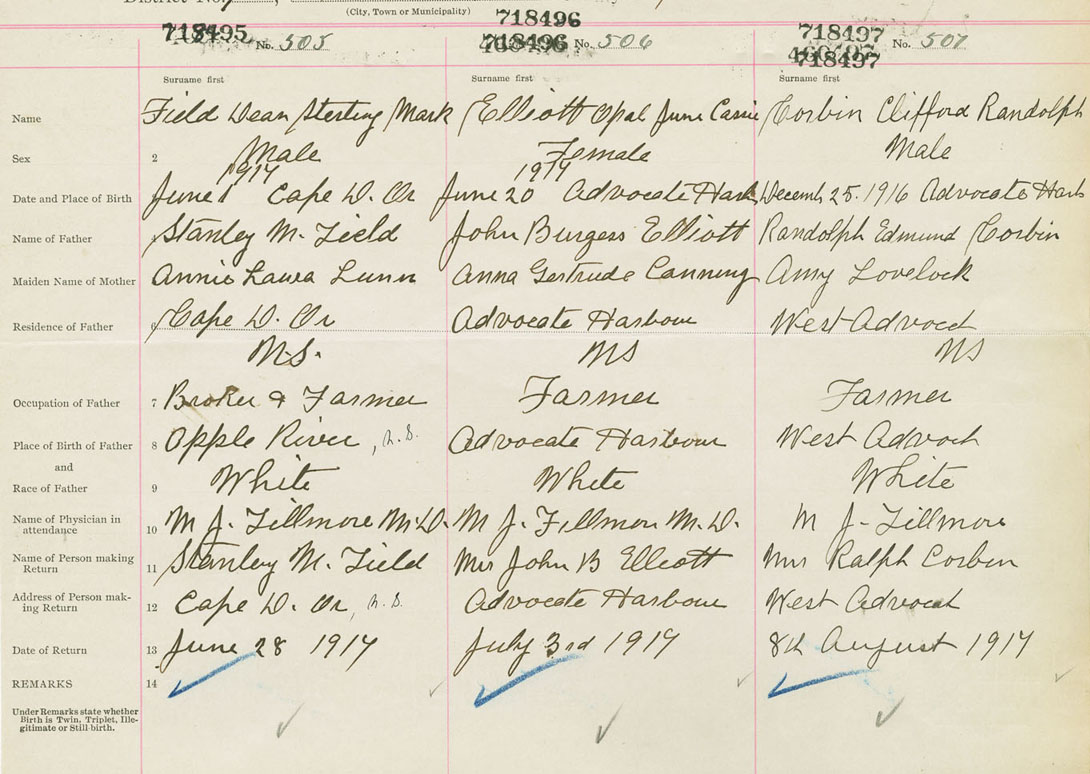 District No.
(City, Town or Municipality)
718495 No. 505 718496 718496 No. 506 718497 718497 No. 507
Surname first Surname first Surname first
Name Field Dean Sterling Mark Elliott Opal June Cassie Corbin Clifford Randolph
Sex 2 Male Female Male
1917 1917
Date and Place of Birth June 1 Cape D. Or June 20 Advocate Harb December 25. 1916 Advocate Harb
Name of Father Stanley M. Field John Burgess Elliott Randolph Edmund Corbin
Maiden Name of Mother Annie Laura Lunn Anna Gertrude Canning Amy Lovelock
Residence of Father 6 Cape D. Or Advocate Harbour West Advocat
N.S. NS NS
Occupation of Father 7 Broker & Farmer Farmer Farmer
Place of Birth of Father 8 Apple River, N.S. Advocate Harbour West Advocat
and
Race of Father 9 White White White
Name of Physician in
attendance 10 M J. Fillmore M.D. M J. Fillmore M.D. M J. Fillmore
Name of Person making
Return 11 Stanley M. Field Mrs John B Elliott Mrs Ralph Corbin
Address of Person mak-
ing Return 12 Cape D. Or, N.S. Advocate Harbour West Advocat
Date of Return 13 June 28 1917 July 3rd 1917 8th August 1917
REMARKS 14
Under Remarks state whether
Birth is Twin, Triplet, Ille-
gitimate or Still-birth.